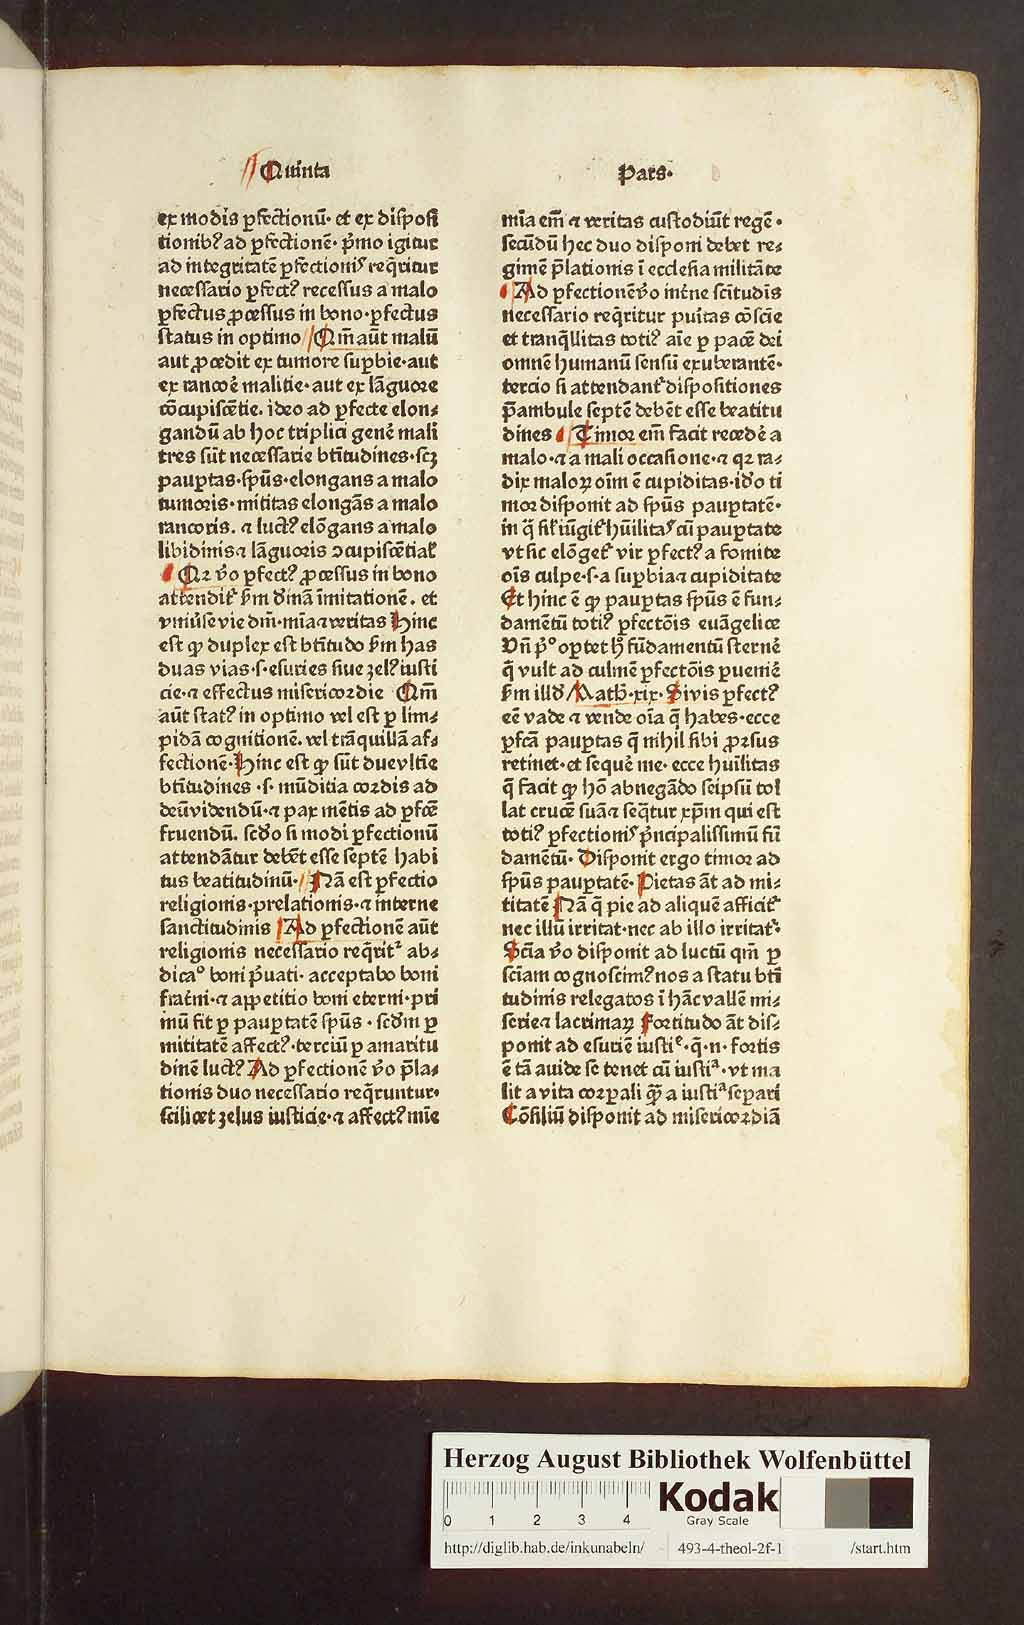 Quinta Pars·
ex modis ꝑfectionū· et ex disposi
tionibꝰ ad ꝑfectionē· pͥmo igitur
ad integritatē ꝑfectionis reqͥritur
necessario ꝑfectꝰ recessus a malo
ꝑfectus ꝓcessus in bono· ꝑfectus
status in optimo Qm̄ aūt malū
aut ꝓcedit ex tumore suꝑbie· aut
ex rancoꝛe malitie· aut ex lāguore
cōcupiscētie. ideo ad ꝑfecte elon⸗
gandū ab hoc triplici genꝰe mali
tres sūt necessarie btītudines· scꝫ
pauꝑtas· spūs· elongans a malo
tumoris· mititas elongās a malo
rancoris. ⁊ luctꝰ elōgans a malo
libidinis ⁊ lāguoris ꝯcupiscētial᷒
Qꝛ v̄o ꝑfectꝰ ꝓcessus in bono
attendit᷑ ẜm dīnā īmitationē. et
vniūse vie dm̄· mīa ⁊ veritas Hinc
est ꝙ duplex est btītudo ẜm has
duas vias· s· esuries siue zelꝰ iusti
cie· ⁊ effectus misericordie Qm̄
aūt statꝰ in optimo vel est ꝑ lim⸗
pidā cognitionē. vel trāquillā af⸗
fectionē· Hinc est ꝙ sūt due vltīe
btītudines · s· mūditia cordis ad
deū videndū· ⁊ pax mētis ad ꝑfcē
fruendū. scd̄o si modi ꝑfectionū
attendātur debēt esse septē habi
tus beatitudinū· Nā est ꝑfectio
religionis· prelationis· ⁊ interne
sanctitudinis Ad ꝑfectionē aūt
religionis necessario reqͥrit᷑ ab⸗
dicaͦ boni pͥuati· acceptabo boni
frat̄ni· ⁊ apꝑetitio boni eterni· pri
mū fit ꝑ pauꝑtatē spūs · scd̄m ꝑ
mititatē affectꝰ· terciū ꝑ amaritu
dinē luctꝰ Ad ꝑfectionē v̄o p̄la⸗
tionis duo necessario reqͥruntur·
scilicet zelus iusticie· ⁊ affectꝰ mīe
mīa em̄ ⁊ veritas custodiūt regē ·
secūdū hec duo disponi debet re⸗
gimē p̄lationis ī ecclesia militāte
Ad ꝑfectionē v̄o int̄ne sctītudīs
necessario reqͥritur puītas cōscīe
et tranqͥllitas totiꝰ aīe ꝑ pacē dei
omnē humanū sensū exuberantē·
tercio si attendant᷑ dispositiones
p̄ambule septē debēt esse beatitu
dines Timor em̄ facit recedēe a
malo· ⁊ a mali occasione· ⁊ qꝛ ra⸗
dix maloꝝ oīm ē cupiditas· id̄o ti
mor disponit ad spūs pauꝑtatē·
in q̄ sil᷒ iūgit᷑ hūilitas cū pauꝑtate
vt sic elōget᷑ vir ꝑfectꝰ a fomite
oīs culpe· s· a suꝑbia ⁊ cupiditate
Et hinc ē ꝙ pauꝑtas spūs ē fun⸗
damētū totiꝰ ꝑfectōis euāgelice
Vn̄ pͥꝰ oꝑtet hͦ fūdamentū sternē
q̄ vult ad culmē ꝑfectōis ꝑuenīe
ẜm illd̄ Math̄· xix· Si vis ꝑfectꝰ
eē vade ⁊ vende oīa q̄ habes· ecce
ꝑfcā pauꝑtas q̄ nihil sibi proꝛsus
retinet· et sequeꝛe me· ecce huīlitas
q̄ facit ꝙ hō abnegādo seipsū tol
lat crucē suā ⁊ seq̄tur xp̄m qui est
totiꝰ ꝑfectionis pͥncipalissimū fū
damētū· Disponit ergo timor ad
spūs pauꝑtatē· Pietas āt ad mi⸗
titatē Nā q̄ pie ad aliquē afficit᷑
nec illū irritat· nec ab illo irritat᷑·
Scīa v̄o disponit ad luctū qm̄ ꝑ
scīam cognoscimꝰ nos a statu btī
tudinis relegatos ī hāc vallē mi⸗
serie ⁊ lacrimaꝝ Fortitudo āt dis⸗
ponit ad esuriē iustiͤ· q̄· n· fortis
ē tā auide se tenet cū iustiͣ· vt ma
lit a vita corꝑali qͣꝫ a iustiͣ seꝑari
Cōsiliū disponit ad misericordiā
Herzog August Bibliothek Wolfenbüttel
0 1 2 3 4
Kodak
Gray Scale
http://diglib.hab.de/inkunabeln/ 493-4-theol-2f-1 /start.htm